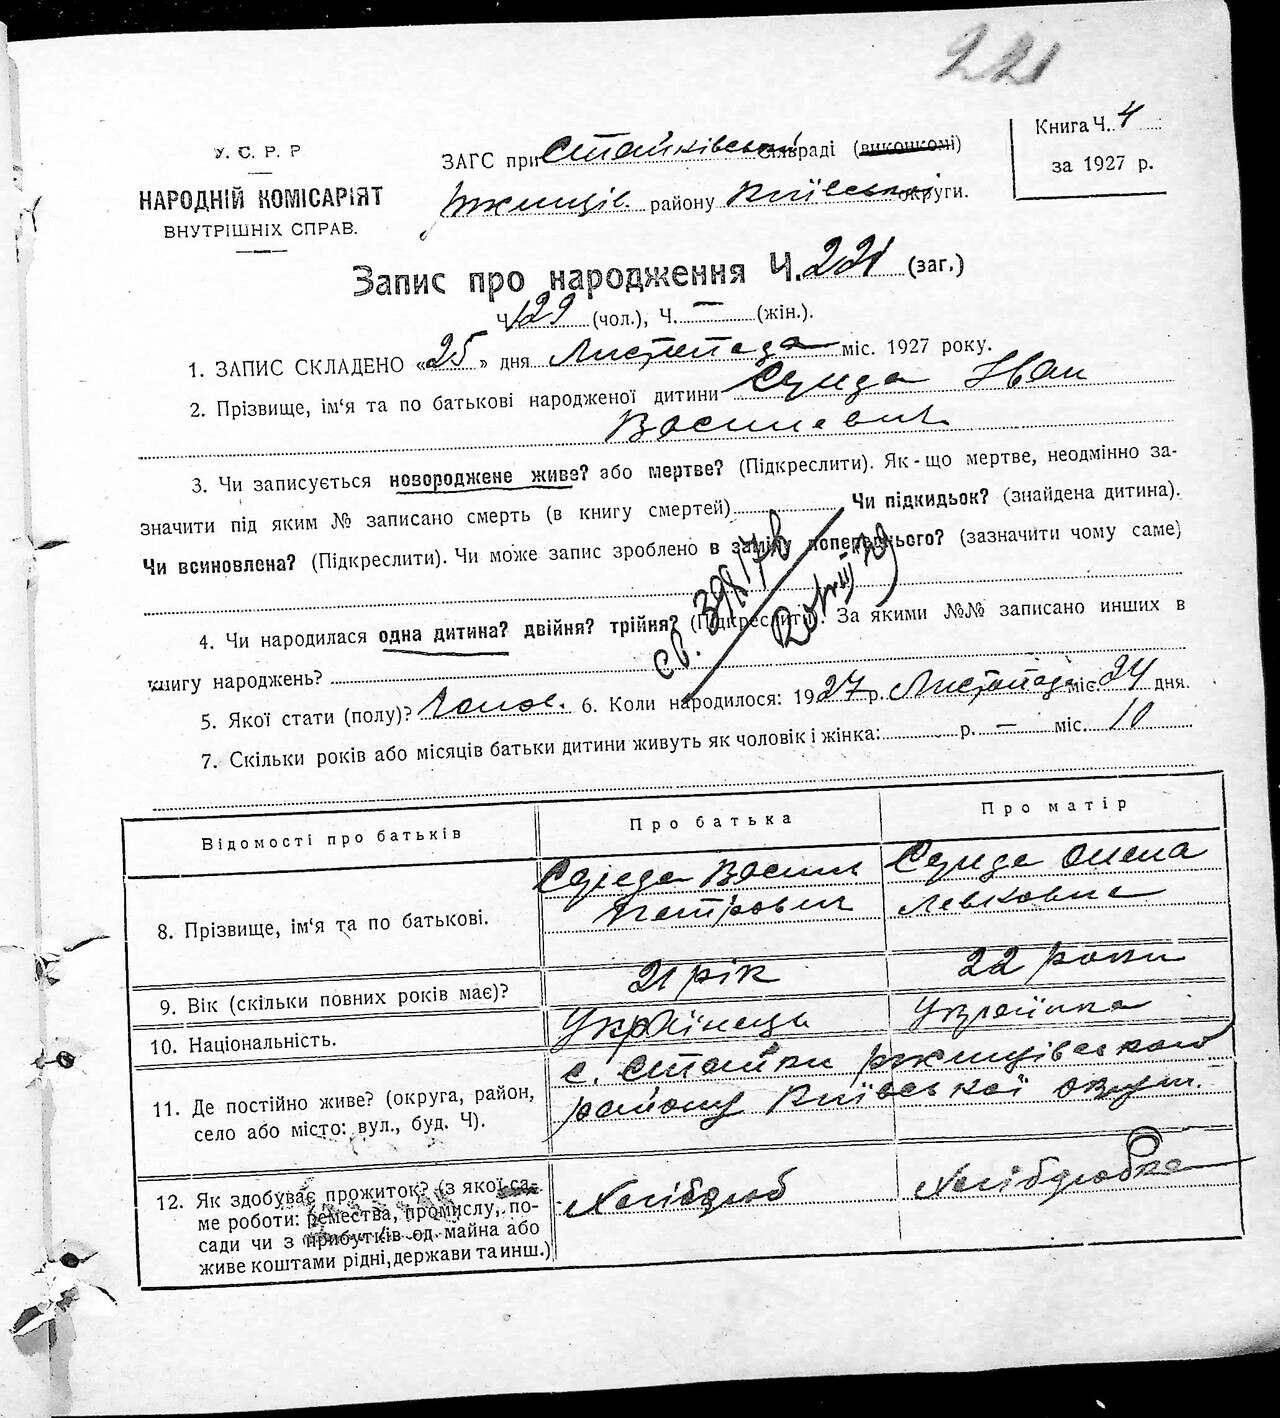 221
У. С. Р. Р
НАРОДНІЙ КОМІСАРІЯТ
ВНУТРІШНІХ СПРАВ.
ЗАГС при Стайківській сільраді (виконкомі)
Ржищів. району Київської округи.
Книга Ч. 4
за 1927 р.
Запис про народження Ч. 221 (заг.)
Ч. 129 (чол.), Ч. — (жін.).
1. ЗАПИС СКЛАДЕНО «25» дня Листопада міс. 1927 року.
2. Прізвище, ім'я та по батькові народженої дитини Середа Іван
Васильевич
3. Чи записується новороджене живе? або мертве? (Підкреслити). Як-що мертве, неодмінно за-
значити під яким № записано смерть (в книгу смертей) Чи підкидьок? (знайдена дитина).
Чи всиновлена? (Підкреслити). Чи може запис зроблено в заміну попереднього? (зазначити чому саме)
св. 398178
4. Чи народилася одна дитина? двійня? трійня? (Підкреслити). За якими №№ записано инших в
книгу народжень?
5. Якої стати (полу)? чолов. 6. Коли народилося: 1927 р. Листопада міс. 24 дня.
7. Скільки років або місяців батьки дитини живуть як чоловік і жінка: р. — міс. 10
Відомості про батьків Про батька Про матір
8. Прізвище, ім'я та по батькові. Середа Василь Середа Олена
Петрович Левковна
9. Вік (скільки повних років має)? 21 рік 22 роки
10. Національність. Українець Українка
11. Де постійно живе? (округа, район, с. Стайки Ржищівського
село або місто: вул., буд. Ч). району Київської округи.
12. Як здобуває прожиток? (з якої са- Хлібороб Хліборобка
ме роботи: ремества, промислу, по-
сади чи з прибутків од майна або
живе коштами рідні, держави та инш.)